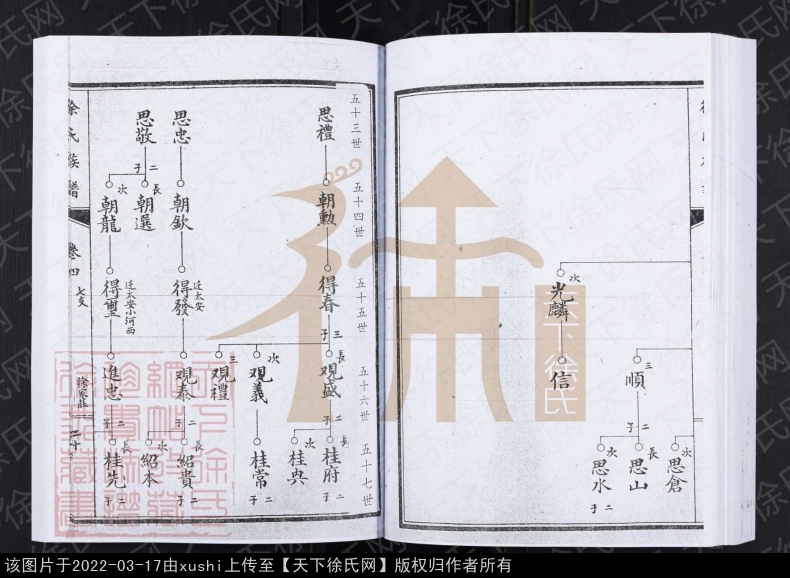 次
光麟
信
三
順
二子
次
思倉
長
思山
次
思水
二子
五十三世
五十四世
五十五世
五十六世
五十七世
思禮
朝勳
得春
三子
長
观盛
二子
長
桂府
二子
次
桂典
次
观義
桂常
二子
三
观禮
思忠
朝欽
得發
迁太安
观泰
二子
長
紹貴
二子
次
紹本
思敬
二子
長
朝選
次
朝龍
得璽
迁太安小河西
進忠
二子
長
桂先
二子
徐氏族譜
卷四
七支
徐家莊
二十
天下徐氏
天下徐氏网
该图片于2022-03-17由xushi上传至【天下徐氏网】版权归作者所有